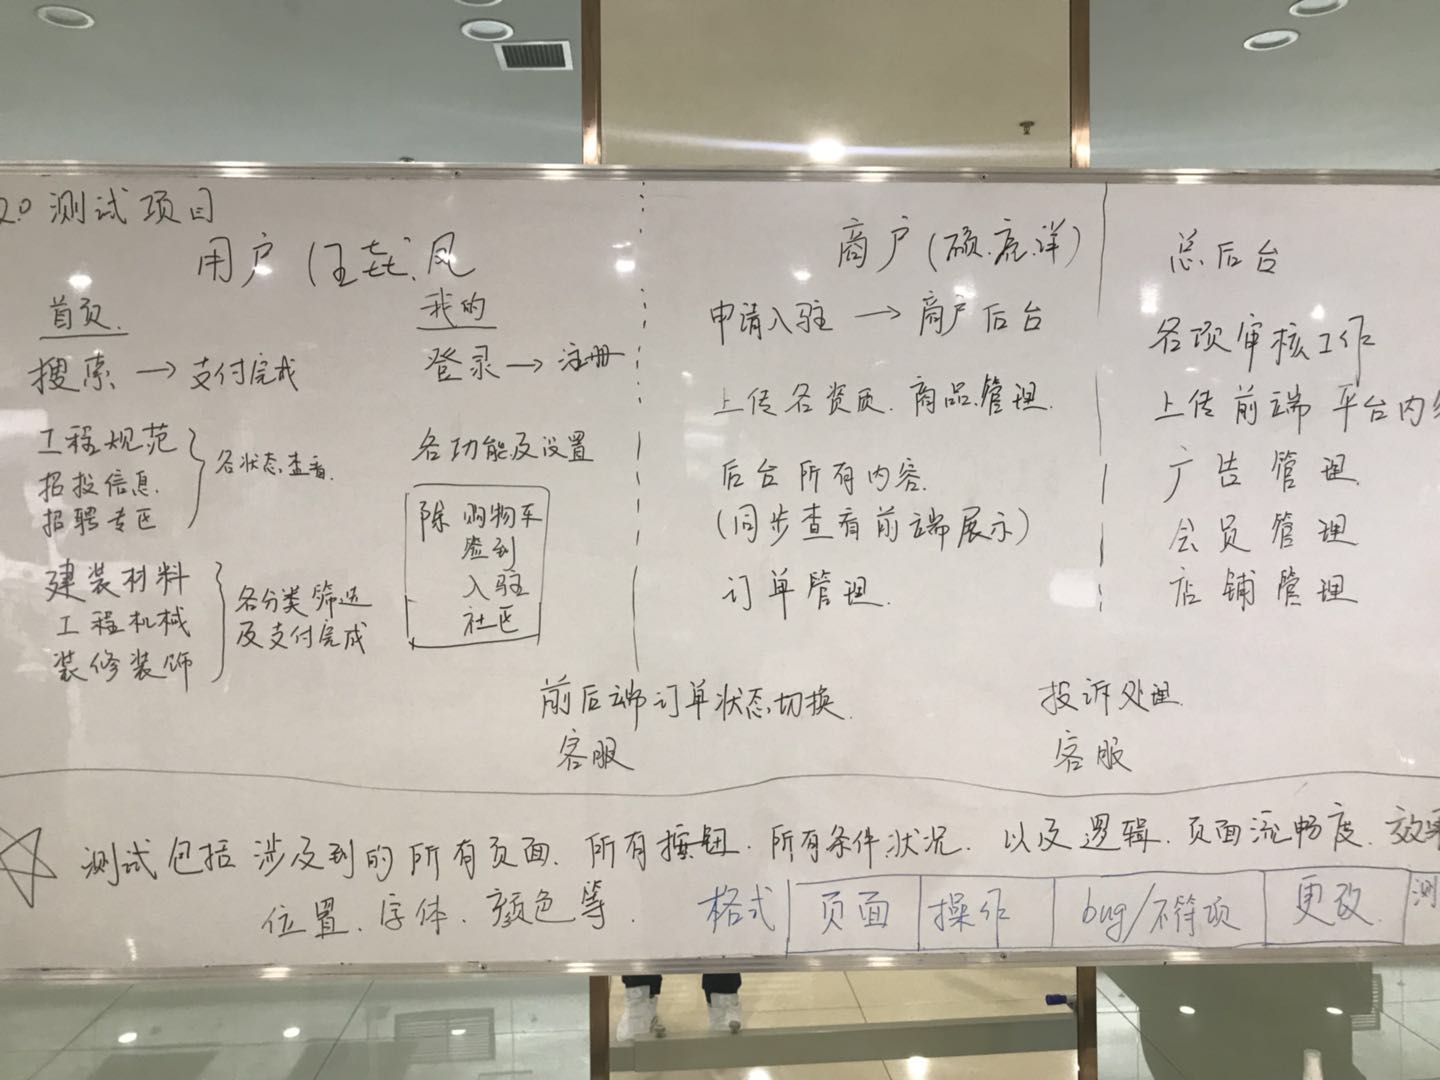 2.0 测试项目
用户(王垚.风
首页.
搜索 → 支付完成
工程规范
招投信息.
招聘专区
各状态查看.
建装材料
工程机械
装修装饰
各分类筛选
及支付完成
我的
登录 → 注册
各功能及设置
除 购物车
签到
入驻
社区
商户(硕.亮.洋)
申请入驻 → 商户后台
上传各资质. 商品管理.
后台所有内容.
(同步查看前端展示)
订单管理.
总后台
各项审核工作
上传前端 平台内
广告管理
会员管理
店铺管理
前后端订单状态切换.
客服
投诉处理.
客服
测试包括涉及到的所有页面. 所有按钮. 所有条件状况. 以及逻辑. 页面流畅度. 效果
位置. 字体. 颜色等.
格式 页面 操作 bug/不符项 更改. 测